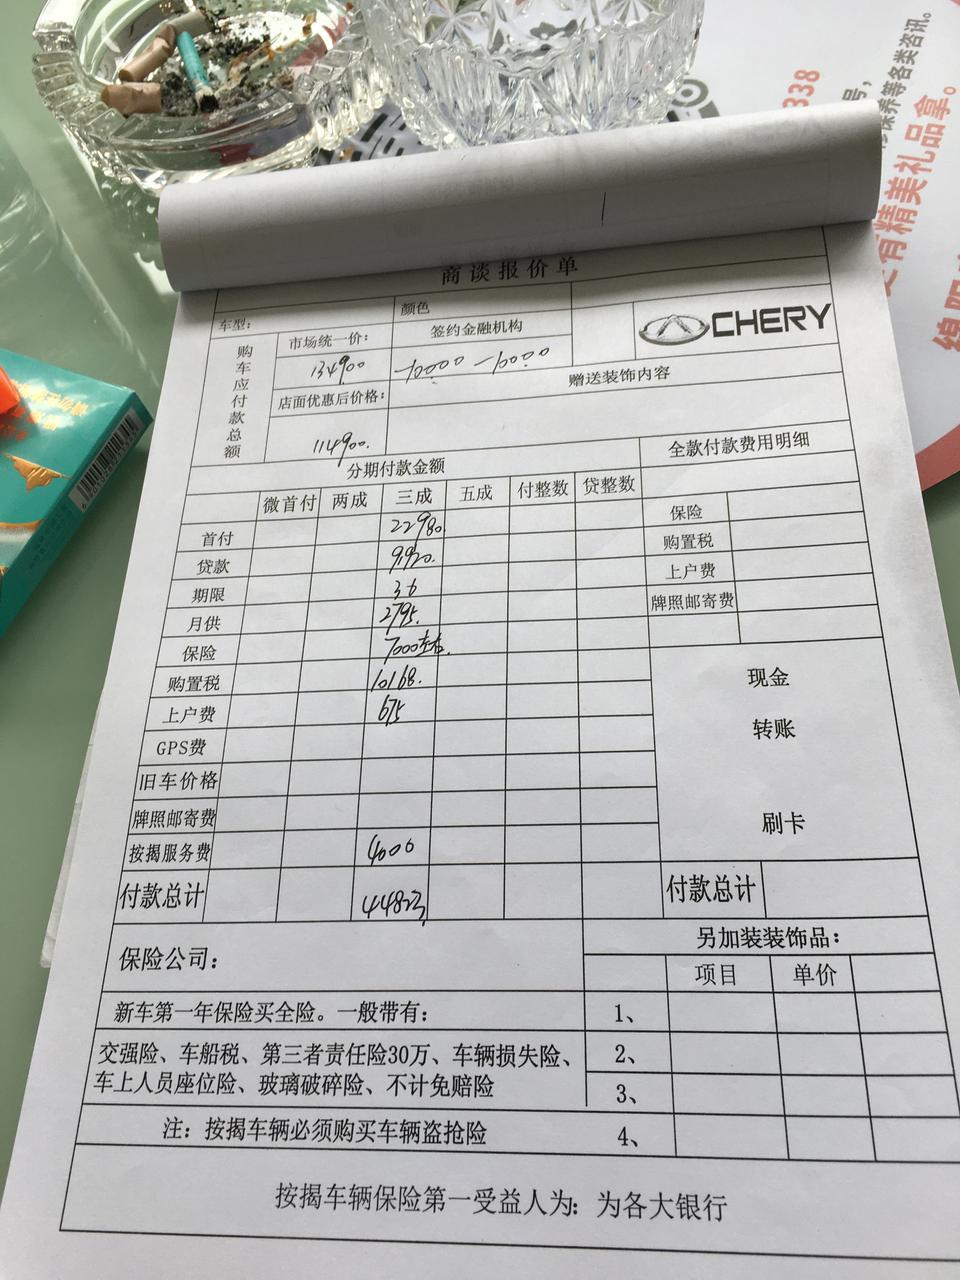 338
号，
保养等各类咨讯。
有精美礼品拿。
绵阳
商谈报价单
车型：
颜色
CHERY
购车应付款总额
市场统一价：
签约金融机构
134900
-10000 -10000
店面优惠后价格：
赠送装饰内容
114900.
分期付款金额
全款付款费用明细
微首付 两成 三成 五成 付整数 贷整数
首付 22980.
保险
贷款 91920.
购置税
期限 36
上户费
月供 2795.
牌照邮寄费
保险 7000左右.
购置税 10168.
现金
上户费 675
转账
GPS费
旧车价格
牌照邮寄费
刷卡
按揭服务费 4000
付款总计 44823.
付款总计
另加装装饰品：
保险公司：
项目 单价
新车第一年保险买全险。一般带有：
1、
交强险、车船税、第三者责任险30万、车辆损失险、
2、
车上人员座位险、玻璃破碎险、不计免赔险
3、
注：按揭车辆必须购买车辆盗抢险
4、
按揭车辆保险第一受益人为：为各大银行